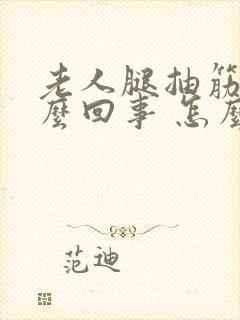 老人腿抽筋
麼回事 怎麼
范迪